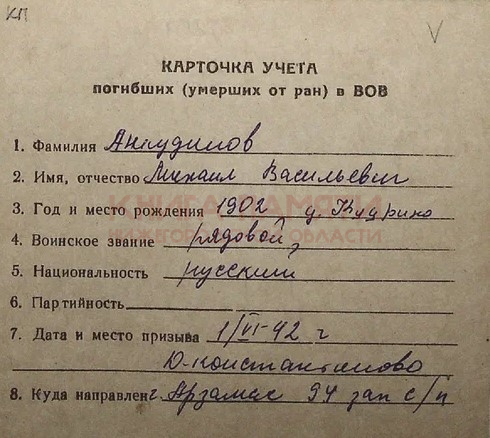 КП
V
КАРТОЧКА УЧЕТА
погибших (умерших от ран) в ВОВ
1. Фамилия Анкудинов
2. Имя, отчество Михаил Васильевич
3. Год и место рождения 1902 д. Кудрино
КНИГА ПАМЯТИ
4. Воинское звание рядовой
НИЖЕГОРОДСКОЙ ОБЛАСТИ
5. Национальность русский
6. Партийность
7. Дата и место призыва 1/VI-42 г
Д-Константиново
8. Куда направлен г. Арзамас 94 зап с/п